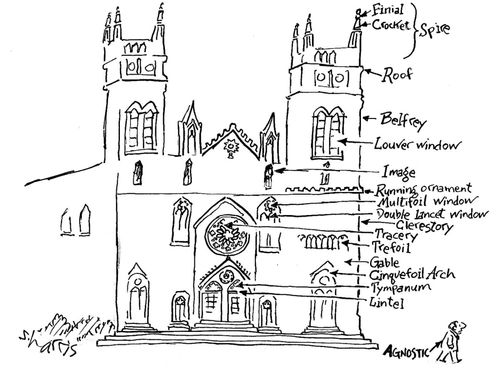 Finial
Crocket
Spire
Roof
Belfrey
Louver window
Image
Running ornament
Multifoil window
Double Lancet window
Clerestory
Tracery
Trefoil
Gable
Cinquefoil Arch
Tympanum
Lintel
S. Harris
AGNOSTIC